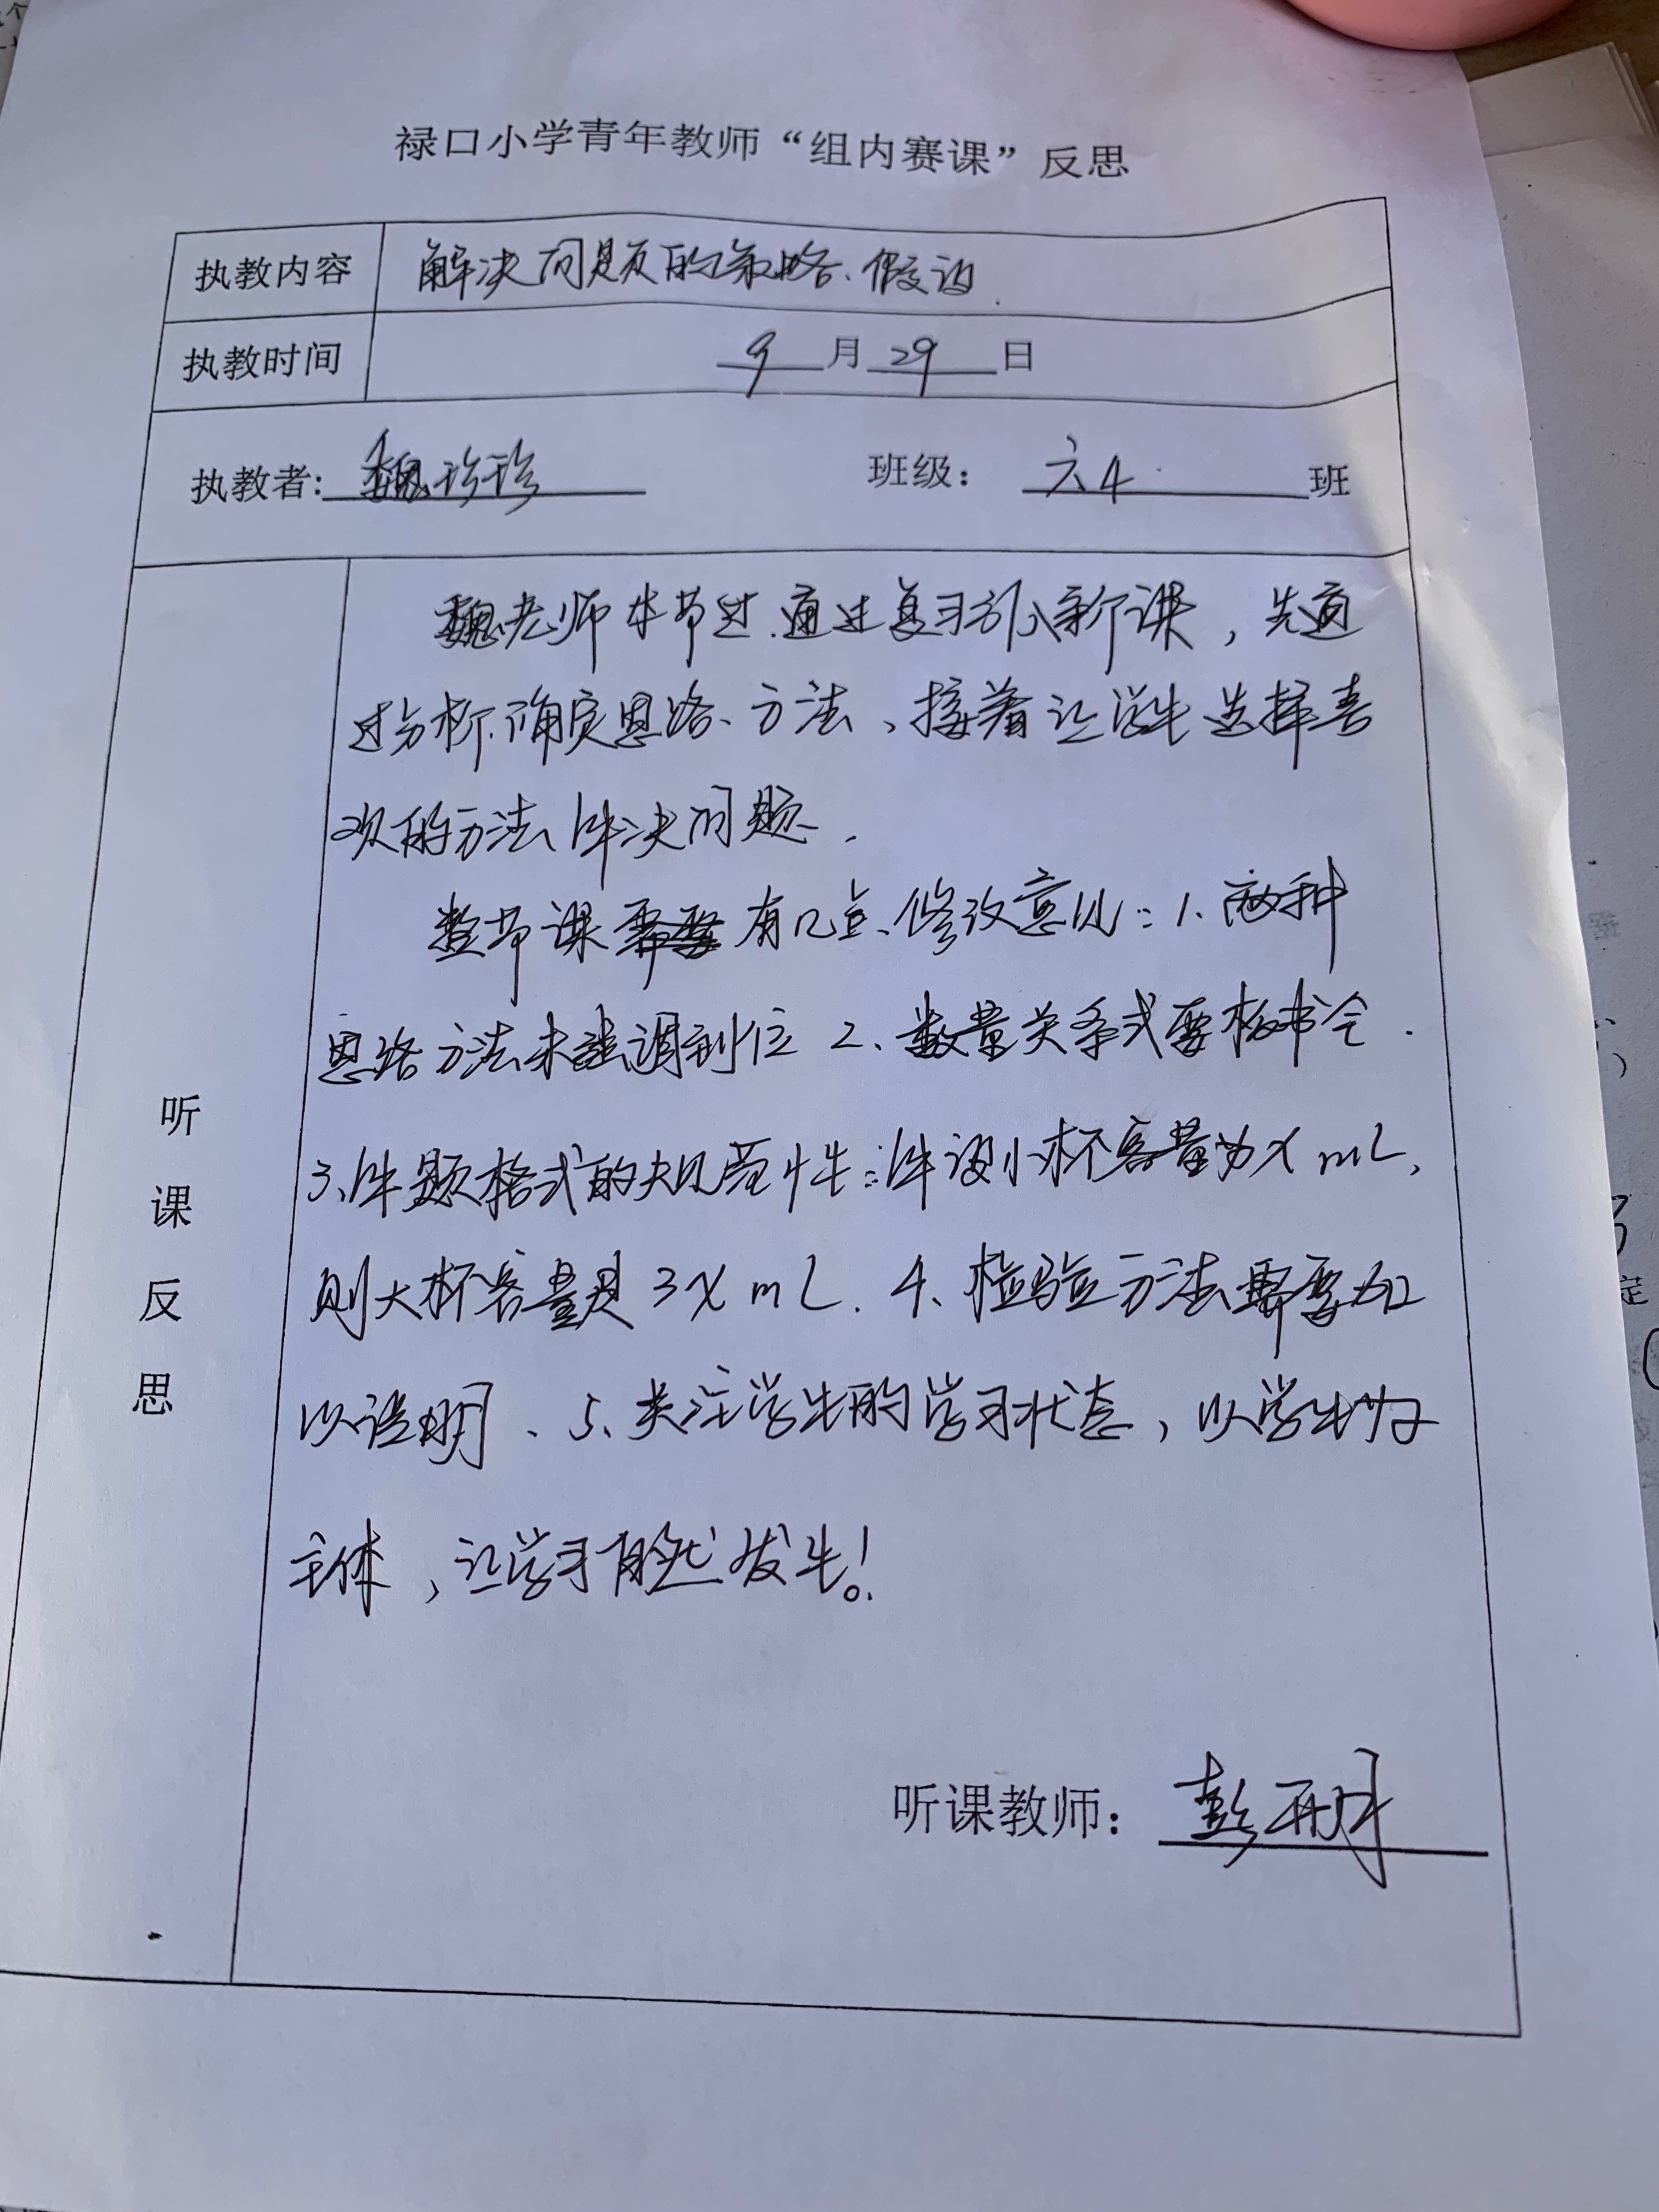 禄口小学青年教师“组内赛课”反思
执教内容 解决问题的策略、假设.
执教时间 9月29日
执教者: 魏珍珍 班级: 六4 班
魏老师本节过.通过复习引入新课，先通
过分析.确定思路、方法、接着让学生选择喜
欢的方法解决问题.
整节课 有几点修改意见：1.两种
思路方法未强调到位 2、数量关系式要板书全.
3、解题格式的规范性：解设小杯容量为x mL,
则大杯容量是3x mL. 4、检验方法需要加
以说明、5、关注学生的学习状态，以学生为
主体，让学习自然发生！
听课反思
听课教师： 彭